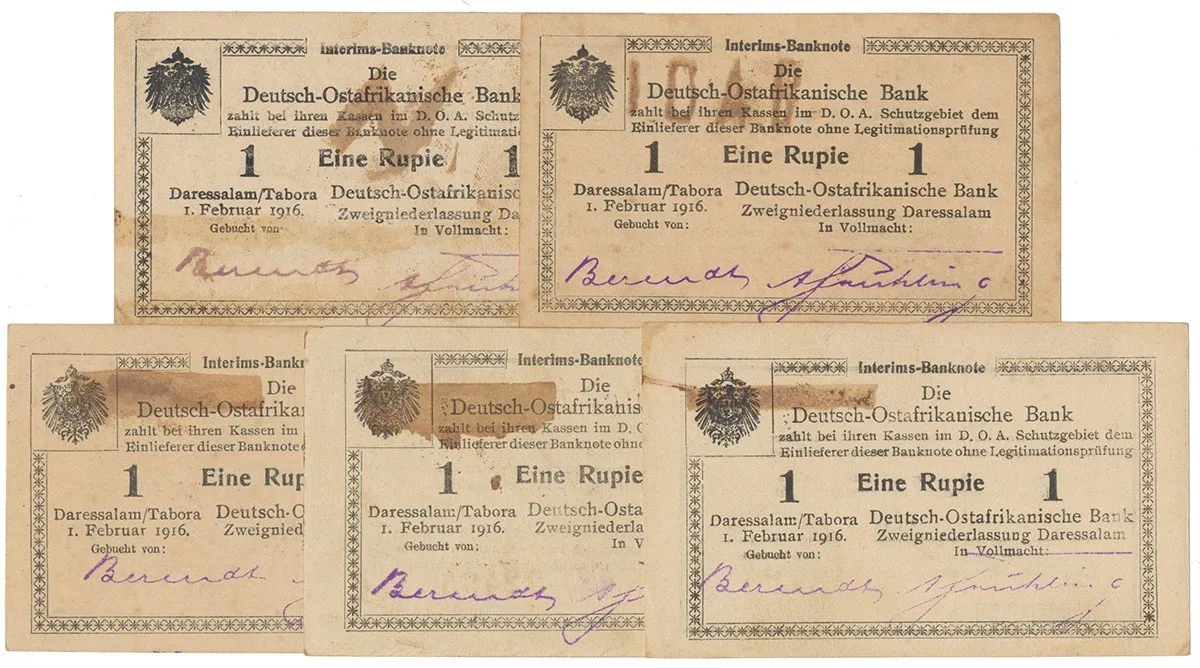 Interims-Banknote
Die
Deutsch-Ostafrikanische Bank
zahlt bei ihren Kassen im D. O. A. Schutz
Einlieferer dieser Banknote ohne Legitimati
1 Eine Rupie 1
Daressalam/Tabora Deutsch-Ostafrikanisc
1. Februar 1916. Zweigniederlassung Da
Gebucht von: In Vollmacht:
Berendt A Frühling
Interims-Banknote
Die
Deutsch-Ostafrikanische Bank
zahlt bei ihren Kassen im D. O. A. Schutzgebiet dem
Einlieferer dieser Banknote ohne Legitimationsprüfung
1 Eine Rupie 1
Daressalam/Tabora Deutsch-Ostafrikanische Bank
1. Februar 1916. Zweigniederlassung Daressalam
Gebucht von: In Vollmacht:
Berendt A Frühling
Interims-Bank
Die
Deutsch-Ostafrika
zahlt bei ihren Kassen im
Einlieferer dieser Banknote
1 Eine Rup
Daressalam/Tabora Deutsch-O
1. Februar 1916. Zweignied
Gebucht von:
Berendt
Interims-Banknote
Die
Deutsch-Ostafrikanis
zahlt bei ihren Kassen im D. O
Einlieferer dieser Banknote ohne
1 Eine Rupie
Daressalam/Tabora Deutsch-Osta
1. Februar 1916. Zweigniederla
Gebucht von: In V
Berendt
Interims-Banknote
Die
Deutsch-Ostafrikanische Bank
zahlt bei ihren Kassen im D. O. A. Schutzgebiet dem
Einlieferer dieser Banknote ohne Legitimationsprüfung
1 Eine Rupie 1
Daressalam/Tabora Deutsch-Ostafrikanische Bank
1. Februar 1916. Zweigniederlassung Daressalam
Gebucht von: In Vollmacht:
Berendt A Frühling